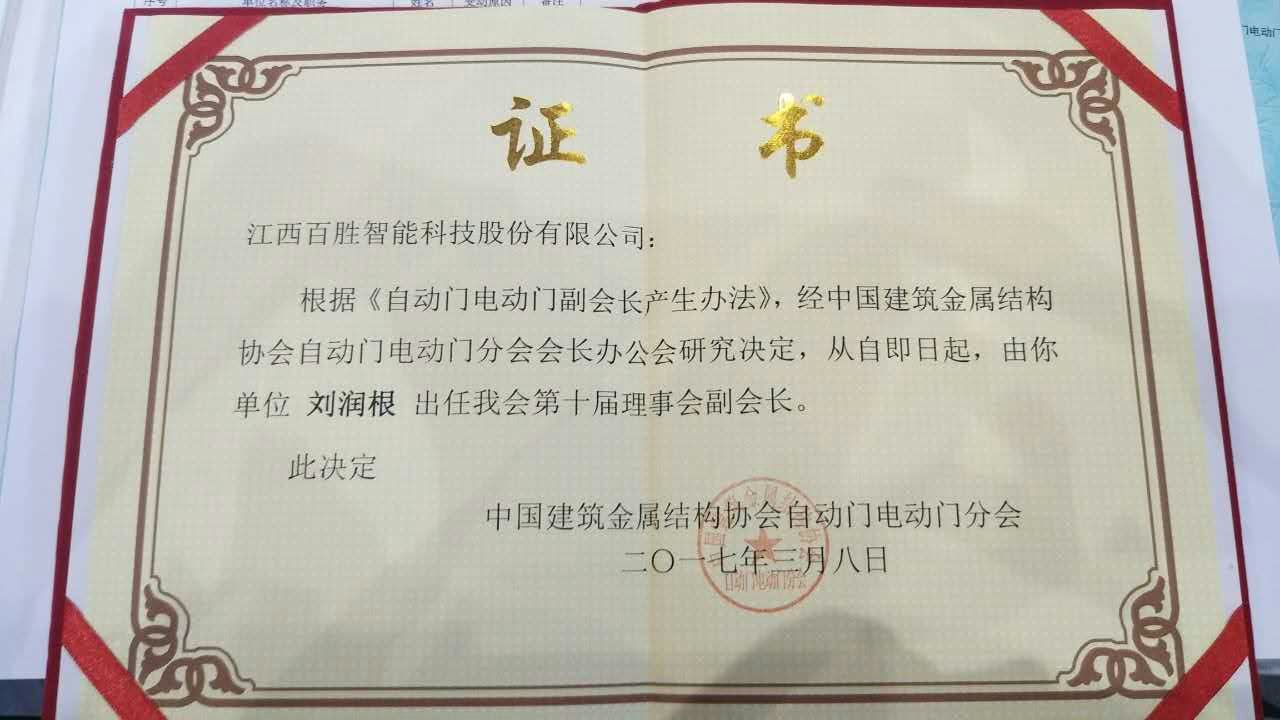 序号 单位名称及职务 姓名 变动原因 备注
门电动门
证 书
江西百胜智能科技股份有限公司：
根据《自动门电动门副会长产生办法》，经中国建筑金属结构
协会自动门电动门分会会长办公会研究决定，从自即日起，由你
单位 刘润根 出任我会第十届理事会副会长。
此决定
中国建筑金属结构协会自动门电动门分会
二〇一七年三月八日
自动门电动门分会